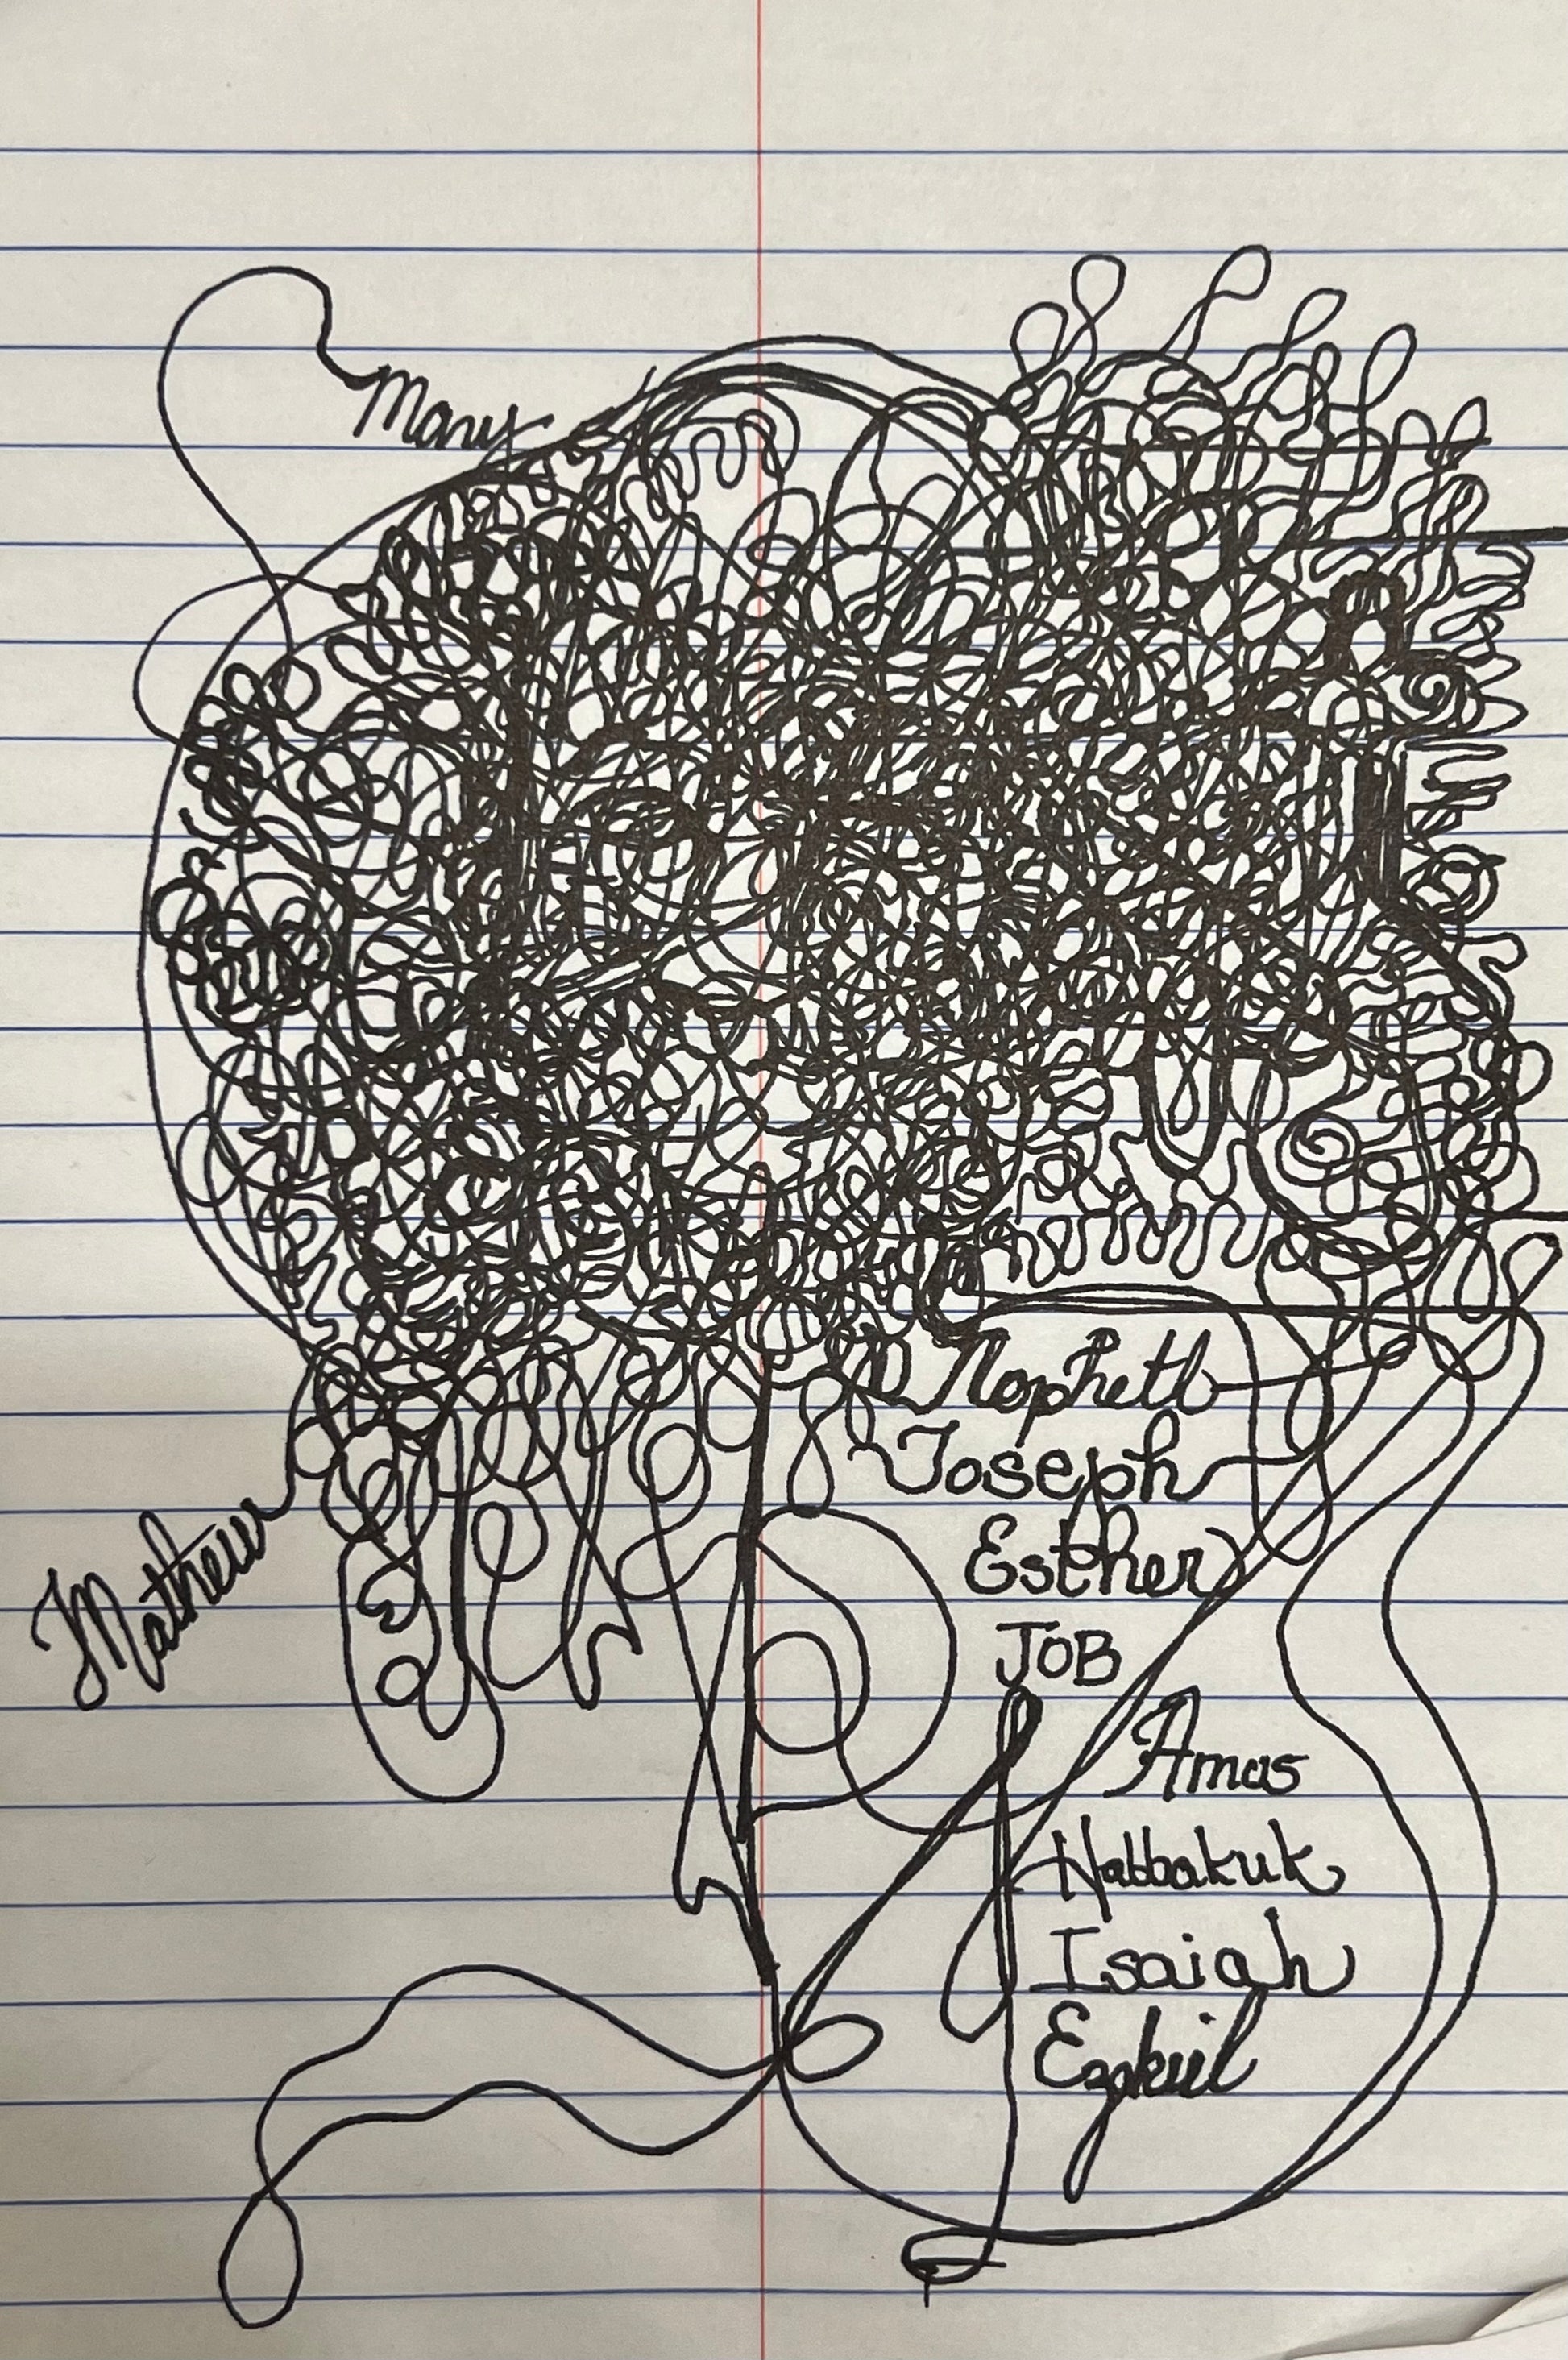 Mary
Mathew
Nophetl
Joseph
Esther
JOB
Amos
Habbakuk
Isaiah
Ezekiel